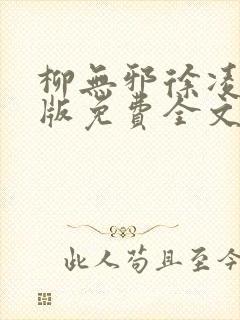 柳無邪徐凌
版免費全文
此人苟且至今